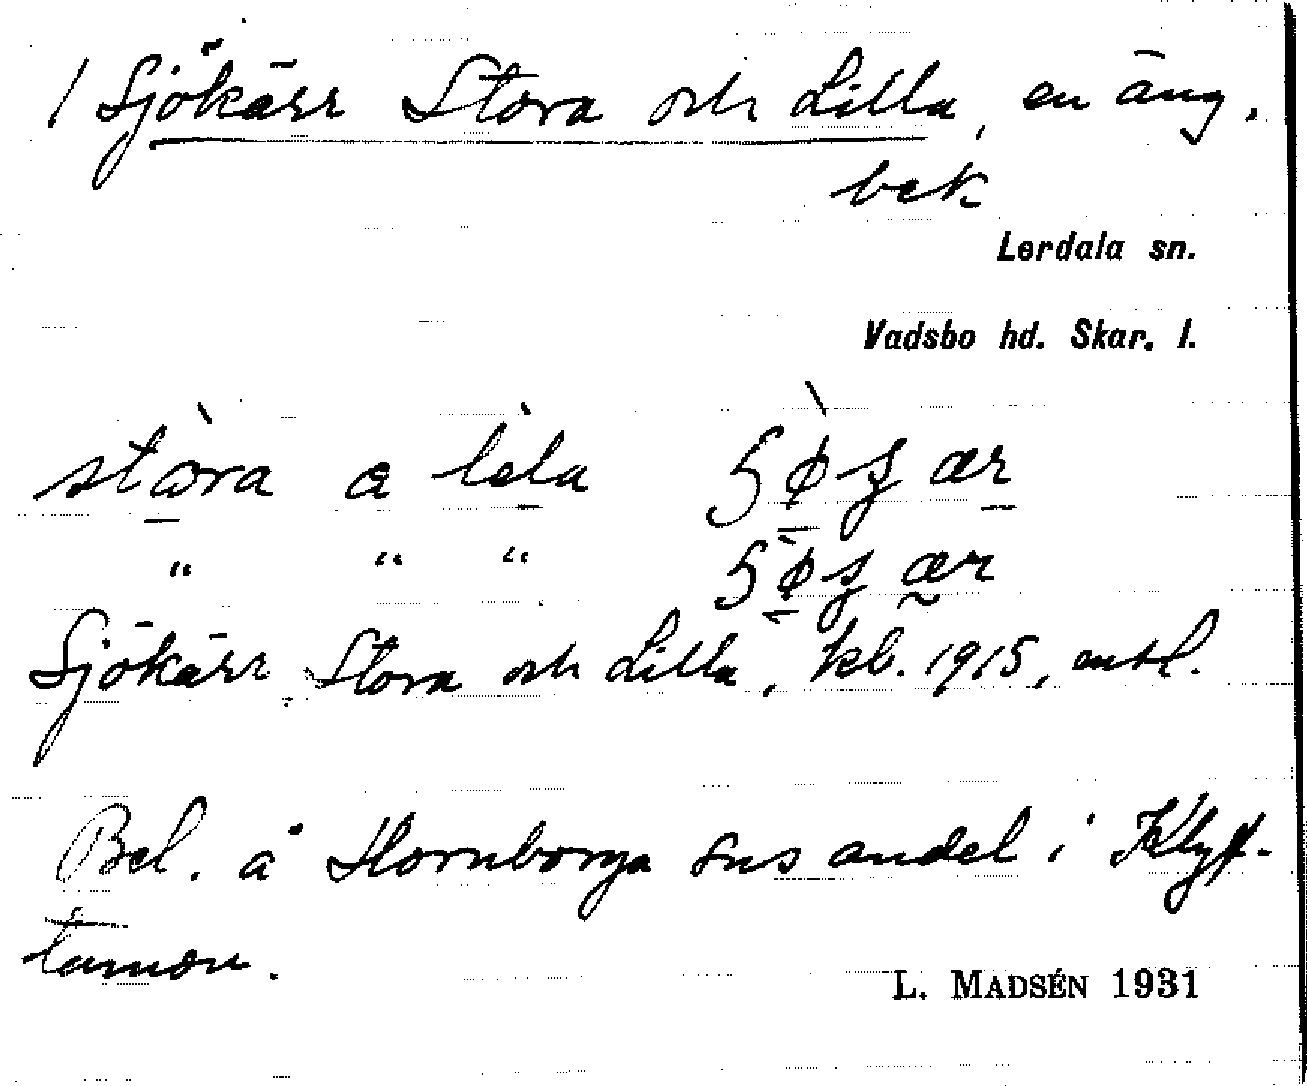 / Sjökärr Stora och Lilla, en äng.
bek
Lerdala sn.
Vadsbo hd. Skar. l.
stora a lela
" " "
Sjökärr Stora och Lilla, kb. 1915, enst.
Bel. å Hornborga sns andel i Klyf-
tamon.
L. MADSÉN 1931